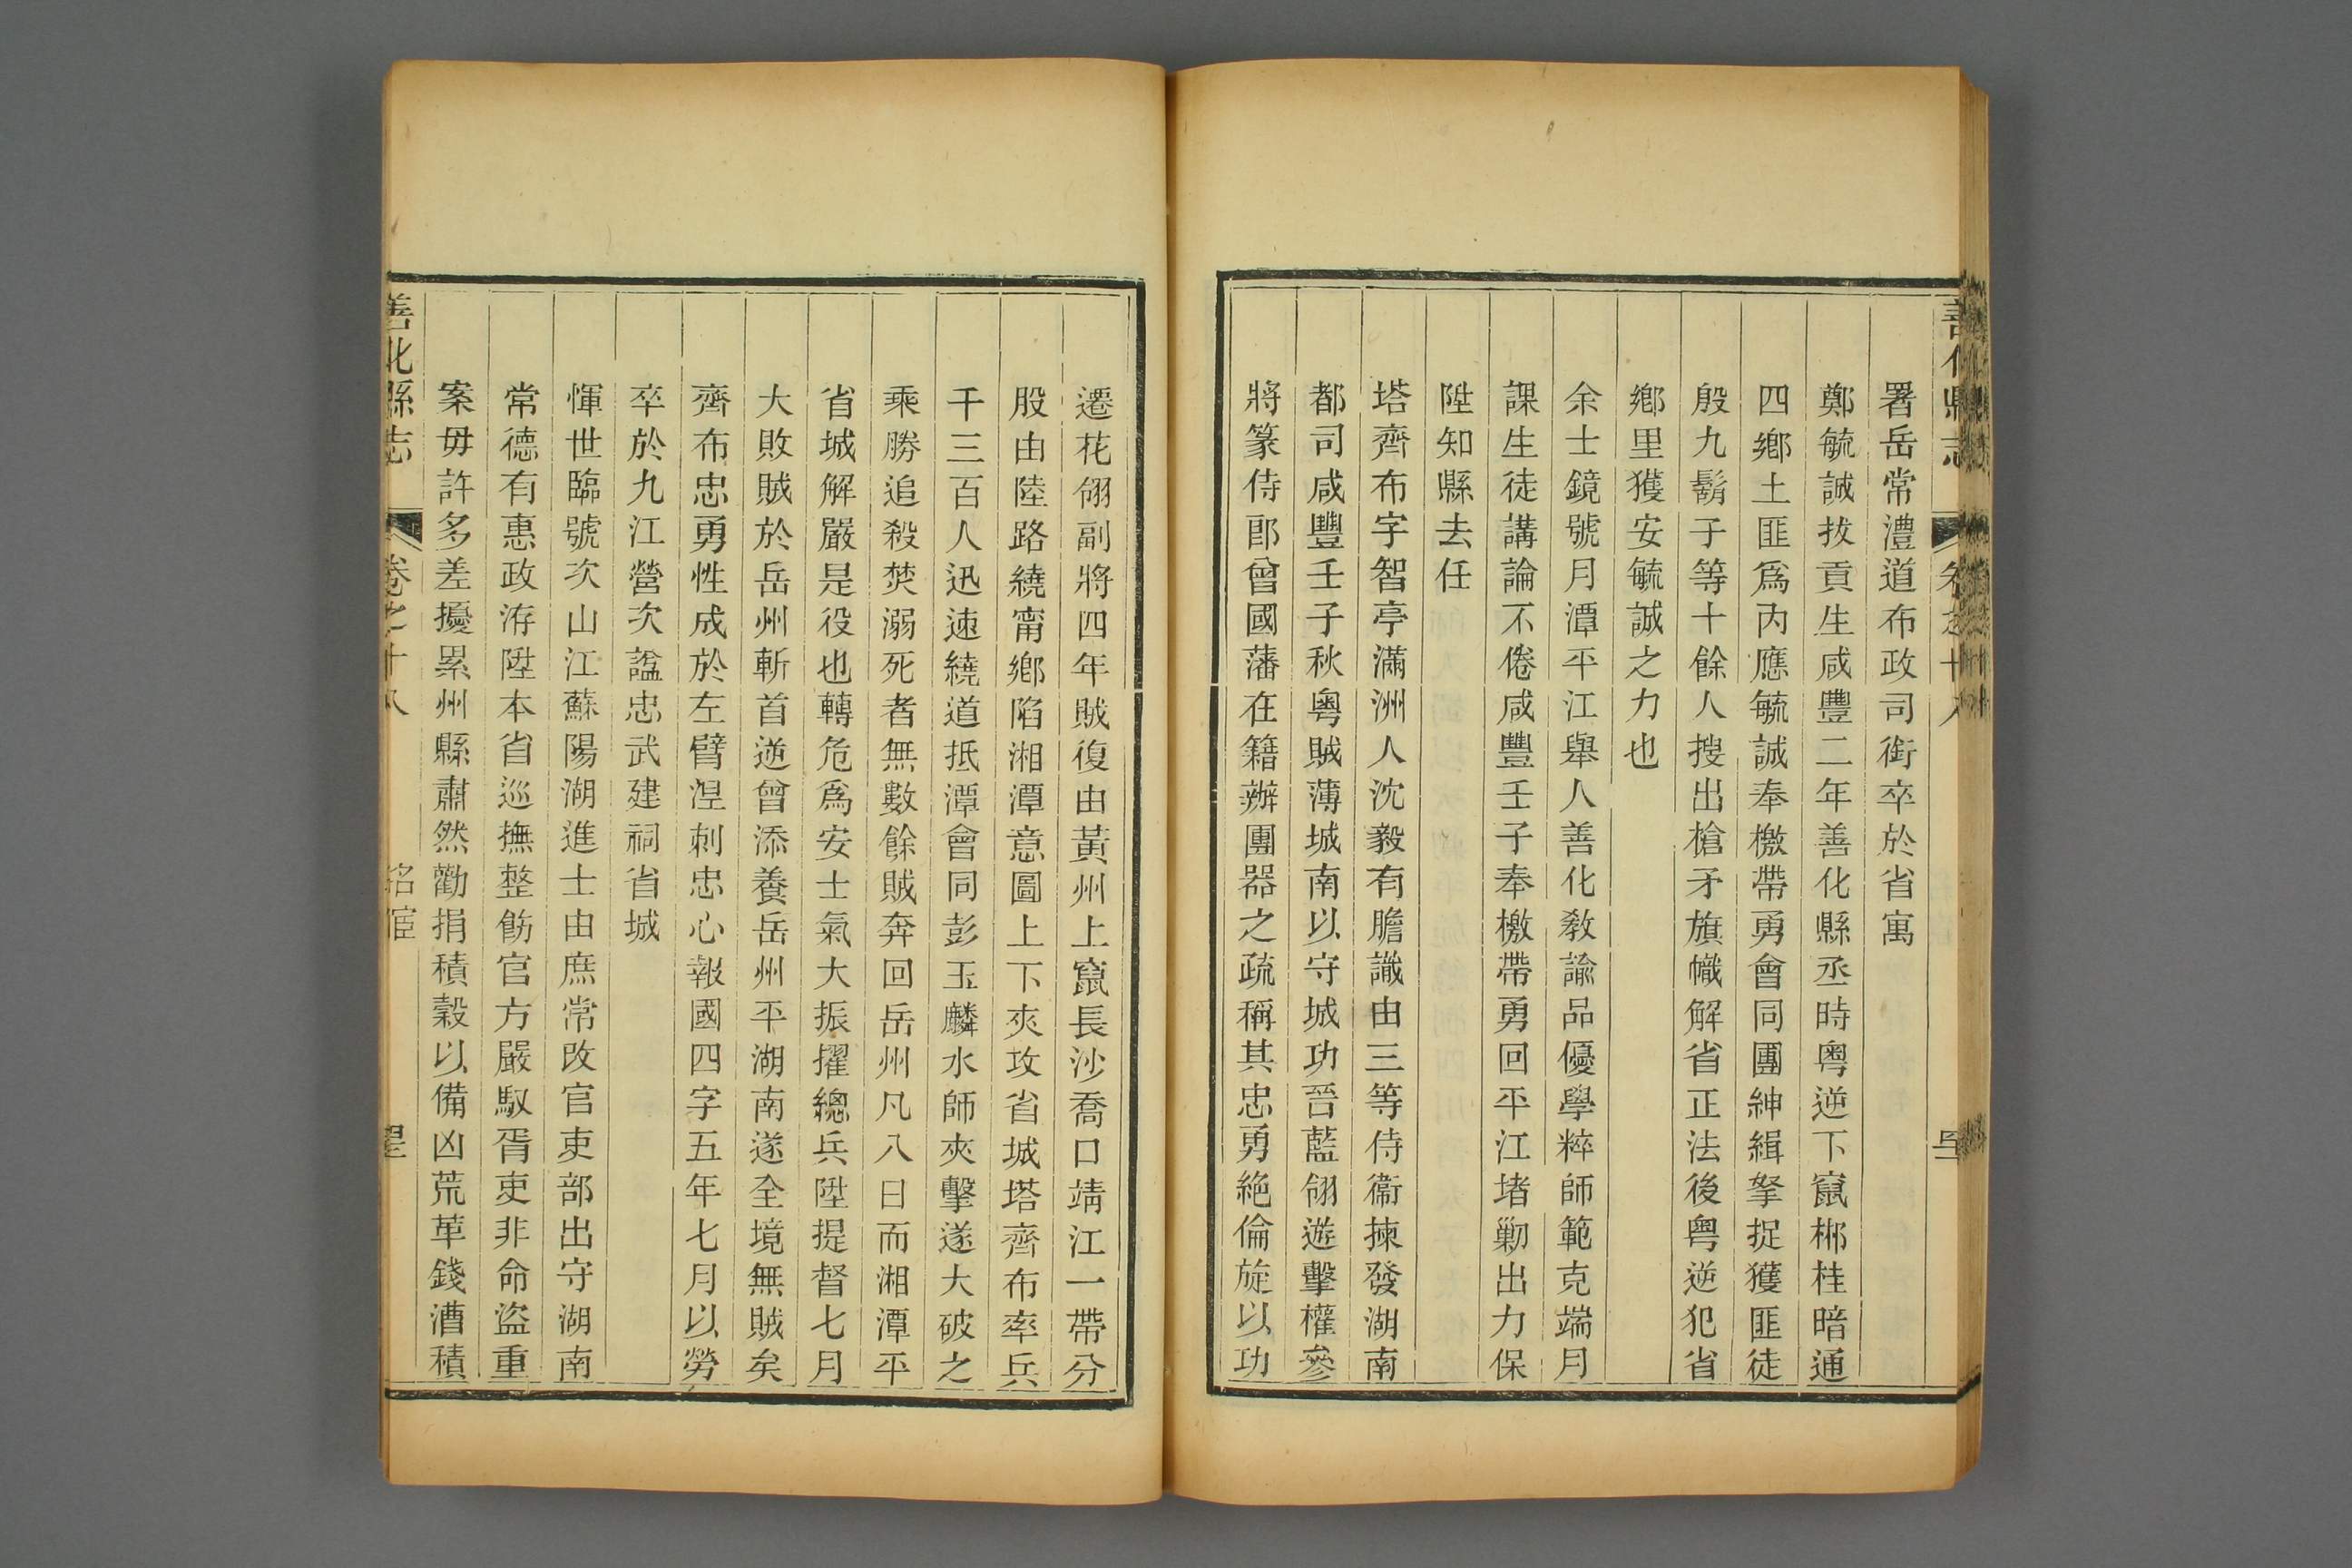 善化縣志
卷之十八
署岳常澧道布政司銜卒於省寓
鄭毓誠拔貢生咸豐二年善化縣丞時粵逆下竄郴桂暗通
四鄉土匪爲內應毓誠奉檄帶勇會同團紳緝拏捉獲匪徒
殷九鬍子等十餘人搜出槍矛旗幟解省正法後粵逆犯省
鄉里獲安毓誠之力也
余士鏡號月潭平江舉人善化教諭品優學粹師範克端月
課生徒講論不倦咸豐壬子奉檄帶勇回平江堵勦出力保
陞知縣去任
塔齊布字智亭滿洲人沈毅有膽識由三等侍衞揀發湖南
都司咸豐壬子秋粵賊薄城南以守城功晉藍翎遊擊權參
將篆侍郎曾國藩在籍辦團器之疏稱其忠勇絶倫旋以功
遷花翎副將四年賊復由黃州上竄長沙喬口靖江一帶分
股由陸路繞甯鄉陷湘潭意圖上下夾攻省城塔齊布率兵
千三百人迅速繞道抵潭會同彭玉麟水師夾擊遂大破之
乘勝追殺焚溺死者無數餘賊奔回岳州凡八日而湘潭平
省城解嚴是役也轉危爲安士氣大振擢總兵陞提督七月
大敗賊於岳州斬首逆曾添養岳州平湖南遂全境無賊矣
齊布忠勇性成於左臂涅刺忠心報國四字五年七月以勞
卒於九江營次諡忠武建祠省城
惲世臨號次山江蘇陽湖進士由庶常改官吏部出守湖南
常德有惠政洊陞本省巡撫整飭官方嚴馭胥吏非命盜重
案毋許多差擾累州縣肅然勸捐積穀以備凶荒革錢漕積
善化縣志
卷之十八
名宦